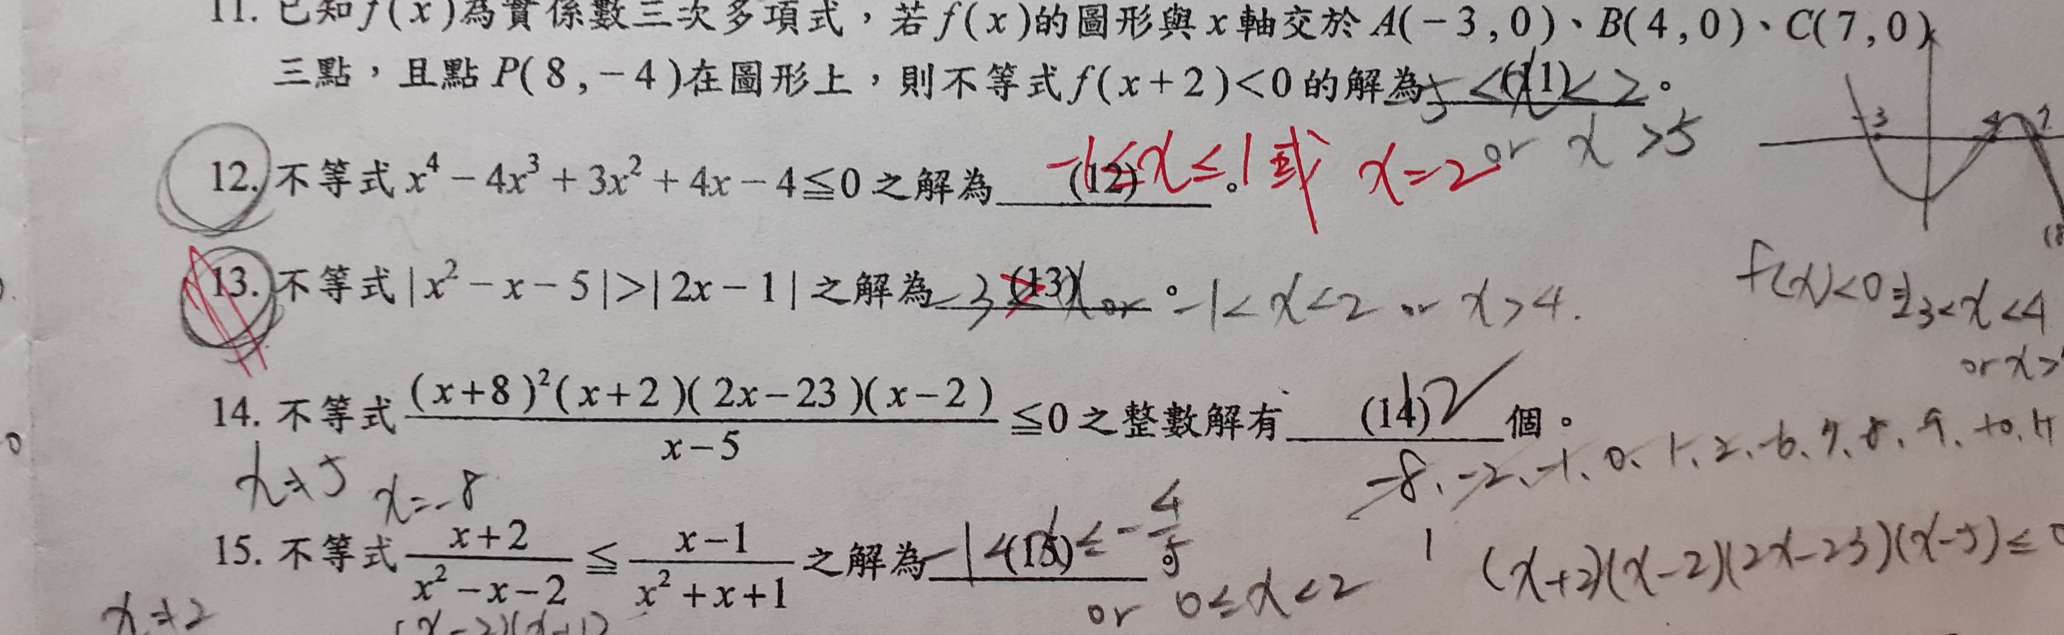 11. 已知f(x)為實係數三次多項式，若f(x)的圖形與x軸交於A(-3,0)、B(4,0)、C(7,0)
三點，且點P(8,-4)在圖形上，則不等式f(x+2)<0的解為 (11) 。
-5<x<2
or x>5
-3 4 7
12. 不等式x⁴-4x³+3x²+4x-4≦0之解為 (12) 。
-1≤x≤1或 x=2
13. 不等式|x²-x-5|>|2x-1|之解為 (13) 。
-1<x<2 or x>4.
f(x)<0 -3<x<4
or x>
14. 不等式(x+8)²(x+2)(2x-23)(x-2)/x-5≦0之整數解有 (14) 個。
12
x≠5 x=-8
-8、-2、-1、0、1、2、6、7、8、9、10、11
15. 不等式x+2/x²-x-2≦x-1/x²+x+1之解為 (15) 。
-1<x≤-4/5
or 0≤x<2
(x+2)(x-2)(2x-23)(x-5)≤0
x≠2
(x-2)(x+1)